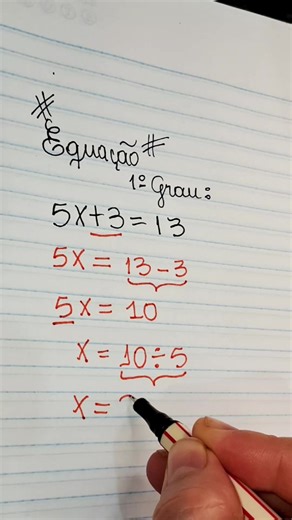 # Equação #
1º Grau:
5x+3=13
5x = 13-3
5x = 10
x = 10÷5
x =